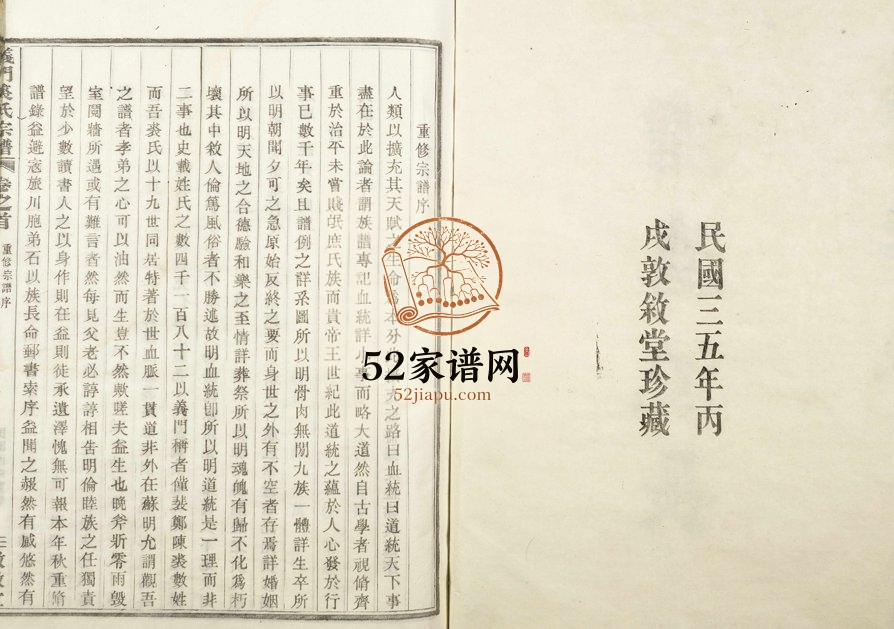 民國三五年丙
戌敦敘堂珍藏
重修宗譜序
人類以擴充其天賦之生命為本外
之路曰血統曰道統天下事
盡在於此論者謂族譜專記血統詳小事而略大道然自古學者視脩齊
重於治平未嘗賤氓庶氏族而貴帝王世紀此道統之蘊於人心發於行
事已數千年矣且譜例之詳系圖所以明骨肉無閒九族一體詳生卒所
以明朝聞夕可之急原始反終之要而身世之外有不空者存焉詳婚姻
所以明天地之合德驗和樂之至情詳葬祭所以明魂魄有歸不化為朽
壞其中敘人倫篤風俗者不勝述故明血統卽所以明道統是一理而非
二事也史載姓氏之數四千一百八十二以義門稱者僅裴鄭陳裘數姓
而吾裘氏以十九世同居特著於世血脈一貫道非外在蘇明允謂觀吾
之譜者孝弟之心可以油然而生豈不然歟嗟夫益生也晚斧斨零雨毀
室鬩牆所遇或有難言者然每見父老必諄諄相告明倫睦族之任獨責
望於少數讀書人之以身作則在益則徒承遺澤愧無可報本年秋重脩
譜錄益避寇旅川胞弟石以族長命郵書索序益聞之赧然有感悠然有
義門裘氏宗譜
卷之首
重修宗譜序
52家谱网
52jiapu.com